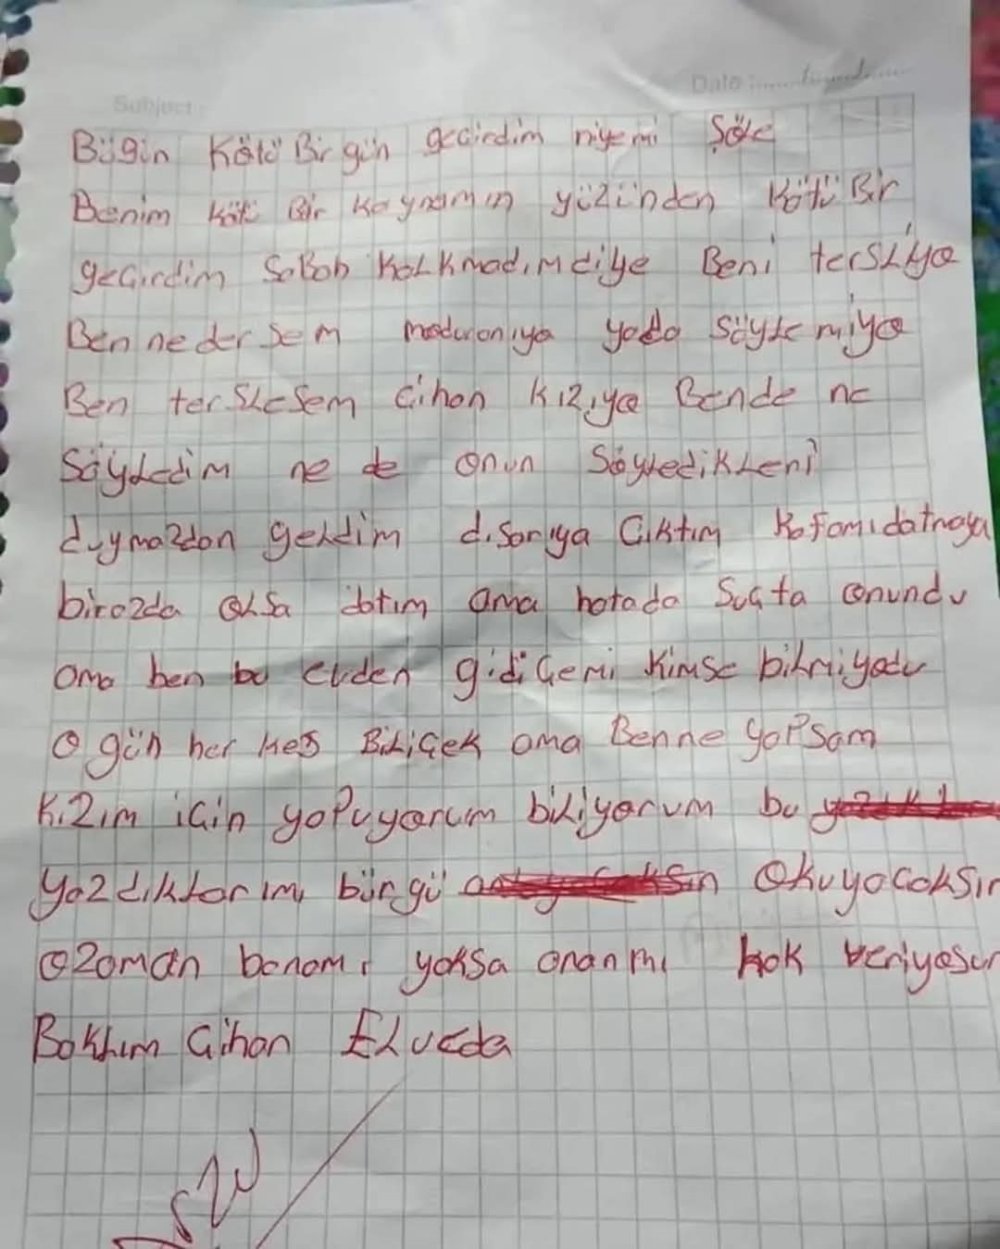 Subject:
Date:
Bügün Kötü Bir gün gecirdim niyemi Şöle
Benim kötü Bir kaynamın yüzünden Kötü Bir
gecirdim SaBah KaLkmadım diye Beni tersliya
Ben ne dersem moduronıya yada Söylemiya
Ben terslesem Cihan kızıya Bende ne
Söyledim ne de onun Söyledikleni
duymazdan geldim dısarıya Cıktım Kafamıdatmaya
birazda olsa datım ama hatada Suçta onundu
ama ben bu evden gidiçemi kimse bilmiyadu
O gün her kes Biliçek ama Ben ne yaPsam
Kızım icin yaPuyarum biliyorum bu
yazdıklarımı bürgü okuyacaksın
ozaman banamı yoksa ananmı hak veriyosun
Bakhım Cihan ELveda